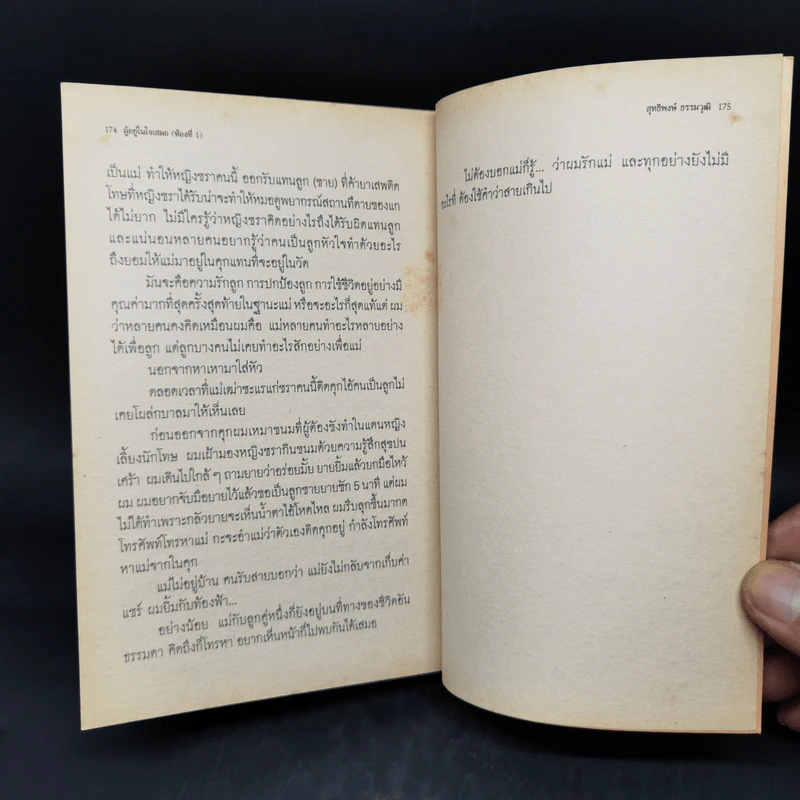 174 ผู้อยู่ในใจเสมอ (ห้องที่ 1)
เป็นแม่ ทำให้หญิงชราคนนี้ ออกรับแทนลูก (ชาย) ที่ค้ายาเสพติด
โทษที่หญิงชราได้รับน่าจะทำให้หมอดูพยากรณ์สถานที่ตายของแก
ได้ไม่ยาก ไม่มีใครรู้ว่าหญิงชราคิดอย่างไรถึงได้รับผิดแทนลูก
และแน่นอนหลายคนอยากรู้ว่าคนเป็นลูกหัวใจทำด้วยอะไร
ถึงยอมให้แม่มาอยู่ในคุกแทนที่จะอยู่ในวัด
มันจะคือความรักลูก การปกป้องลูก การใช้ชีวิตอยู่อย่างมี
คุณค่ามากที่สุดครั้งสุดท้ายในฐานะแม่ หรือจะอะไรก็สุดแท้แต่ ผม
ว่าหลายคนคงคิดเหมือนผมคือ แม่หลายคนทำอะไรหลายอย่าง
ได้เพื่อลูก แต่ลูกบางคนไม่เคยทำอะไรสักอย่างเพื่อแม่
นอกจากหาเหามาใส่หัว
ตลอดเวลาที่แม่เฒ่าชะแรแก่ชราคนนี้ติดคุกไอ้คนเป็นลูกไม่
เคยโผล่กบาลมาให้เห็นเลย
ก่อนออกจากคุกผมเหมาขนมที่ผู้ต้องขังทำในแดนหญิง
เลี้ยงนักโทษ ผมเฝ้ามองหญิงชรากินขนมด้วยความรู้สึกสุขปน
เศร้า ผมเดินไปใกล้ๆ ถามยายว่าอร่อยมั้ย ยายยิ้มแล้วยกมือไหว้
ผม ผมอยากจับมือยายไว้แล้วขอเป็นลูกชายยายซัก 5 นาที แต่ผม
ไม่ได้ทำเพราะกลัวยายจะเห็นน้ำตาไอ้โหดไหล ผมรีบลุกขึ้นมากด
โทรศัพท์โทรหาแม่ กะจะอำแม่ว่าตัวเองติดคุกอยู่ กำลังโทรศัพท์
หาแม่จากในคุก
แม่ไม่อยู่บ้าน คนรับสายบอกว่า แม่ยังไม่กลับจากเก็บค่า
แชร์ ผมยิ้มกับท้องฟ้า...
อย่างน้อย แม่กับลูกคู่หนึ่งก็ยังอยู่บนที่ทางของชีวิตอัน
ธรรมดา คิดถึงก็โทรหา อยากเห็นหน้าก็ไปพบกันได้เสมอ
สุทธิพงษ์ ธรรมวุฒิ 175
ไม่ต้องบอกแม่ก็รู้... ว่าผมรักแม่ และทุกอย่างยังไม่มี
อะไรที่ ต้องใช้คำว่าสายเกินไป